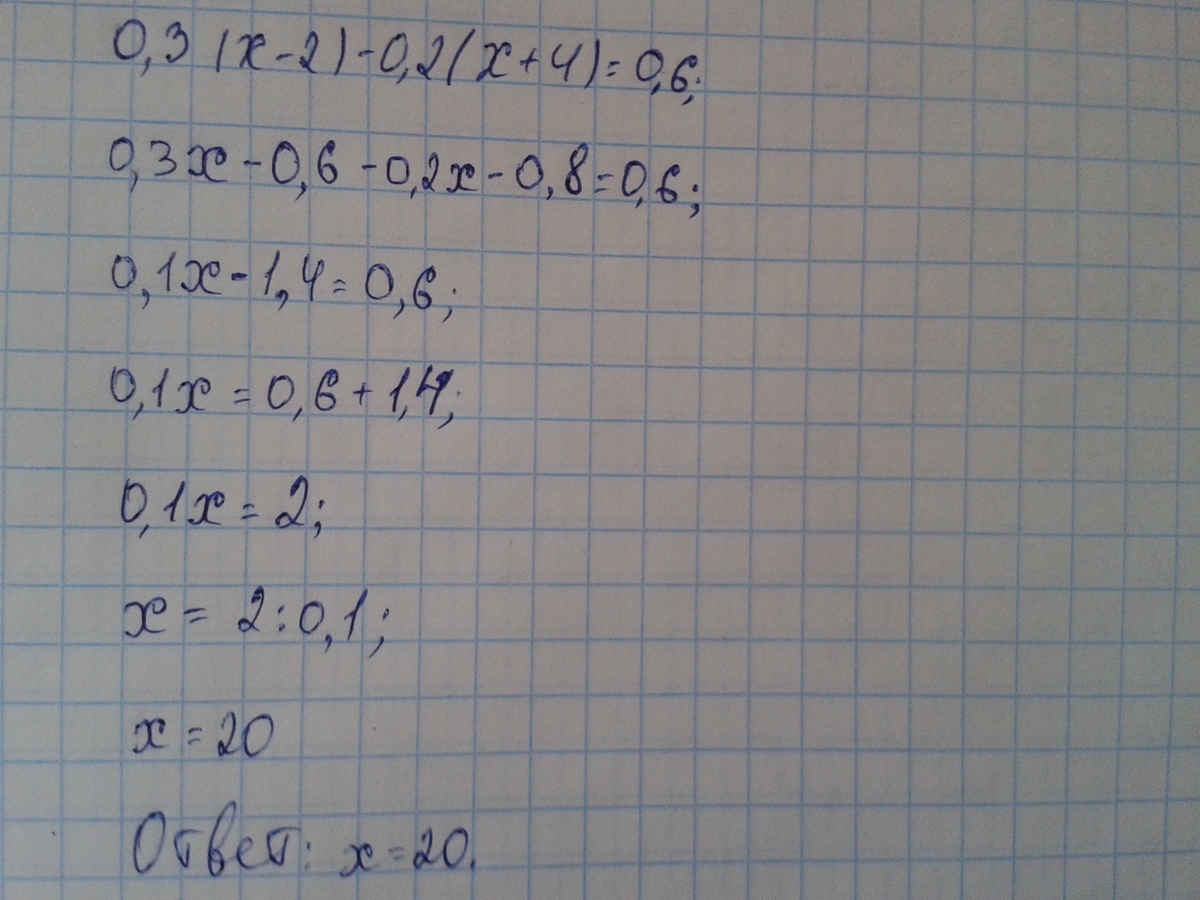 0,3 (x-2)-0,2(x+4)=0,6;
0,3x-0,6-0,2x-0,8=0,6;
0,1x-1,4=0,6;
0,1x=0,6+1,4;
0,1x=2;
x=2:0,1;
x=20
Ответ: x=20.